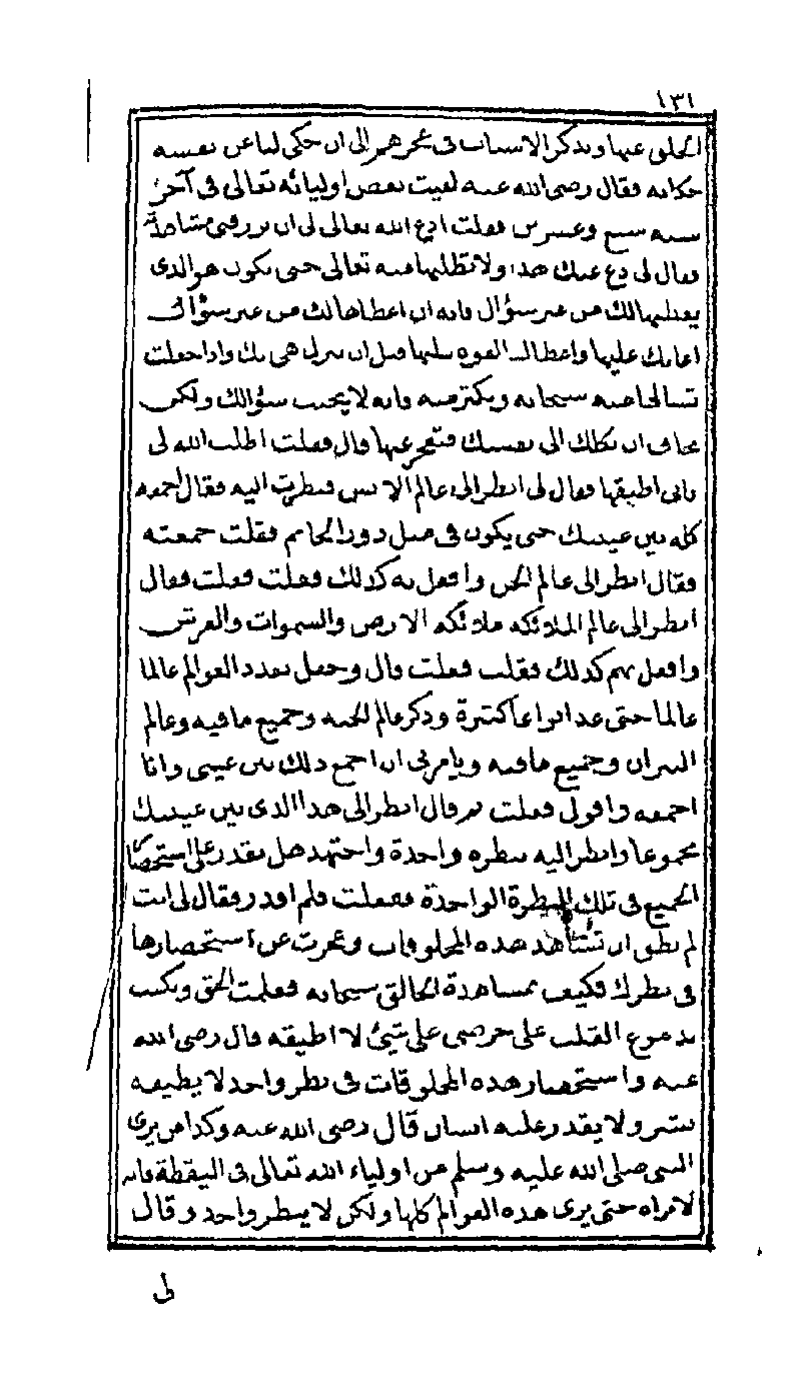 ١٣١
الخلق عنها ويذكر الاسباب في عجزهم الى ان حكى لنا عن نفسه
حكاية فقال رضى الله عنه لقيت بعض اوليائه تعالى في آخر
سنة سبع وعشرين فقلت ادع الله تعالى لى ان يرزقنى مشاهدته
فقال لى دع عنك هذا ولا تطلبها منه تعالى حتى يكون هو الذى
يعطيها لك من غير سؤال فانه ان اعطاها لك من غير سؤالك
اعانك عليها واعطاك القوة عليها قبل ان تنزل هى بك واذا جعلت
تسالها منه سبحانه وتكثر منه فانه لا يخيب سؤالك ولكن
نخاف ان يكلك الى نفسك فتعجز عنها قال فقلت اطلب الله لى
فانى اطيقها فقال لى انظر الى عالم الانس فنظرت اليه فقال اجمعه
كله بين عينيك حتى يكون في مثل دور الخاتم فقلت جمعته
فقال انظر الى عالم الجن وافعل به كذلك ففعلت فقلت فعلت فقال
انظر الى عالم الملائكة ملائكة الارض والسموات والعرش
وافعل بهم كذلك فقلت فعلت قال وجعل يعدد العوالم عالما
عالما حتى عد انواعا كثيرة وذكر عالم الجنة وجميع ما فيه وعالم
النيران وجميع ما فيه ويامرنى ان اجمع ذلك بين عينى وانا
اجمعه واقول فعلت ثم قال انظر الى هذا الذى بين عينيك
مجموعا وانظر اليه نظرة واحدة واجتهد هل تقدر على استحضار
الجميع في تلك النظرة الواحدة ففعلت فلم اقدر فقال لى انت
لم تطق ان تشاهد هذه المخلوقات وعجزت عن استحضارها
في نظرك فكيف بمشاهدة الخالق سبحانه فعلمت الحق وبكيت
بدموع القلب على حرصى على شيئ لا اطيقه قال رضى الله
عنه واستحضار هذه المخلوقات في نظر واحد لا يطيقه
بشر ولا يقدر عليه انسان قال رضى الله عنه وكذا من يرى
النبى صلى الله عليه وسلم من اولياء الله تعالى في اليقظة فانه
لا يراه حتى يرى هذه العوالم كلها ولكن لا بنظر واحد وقال
لى